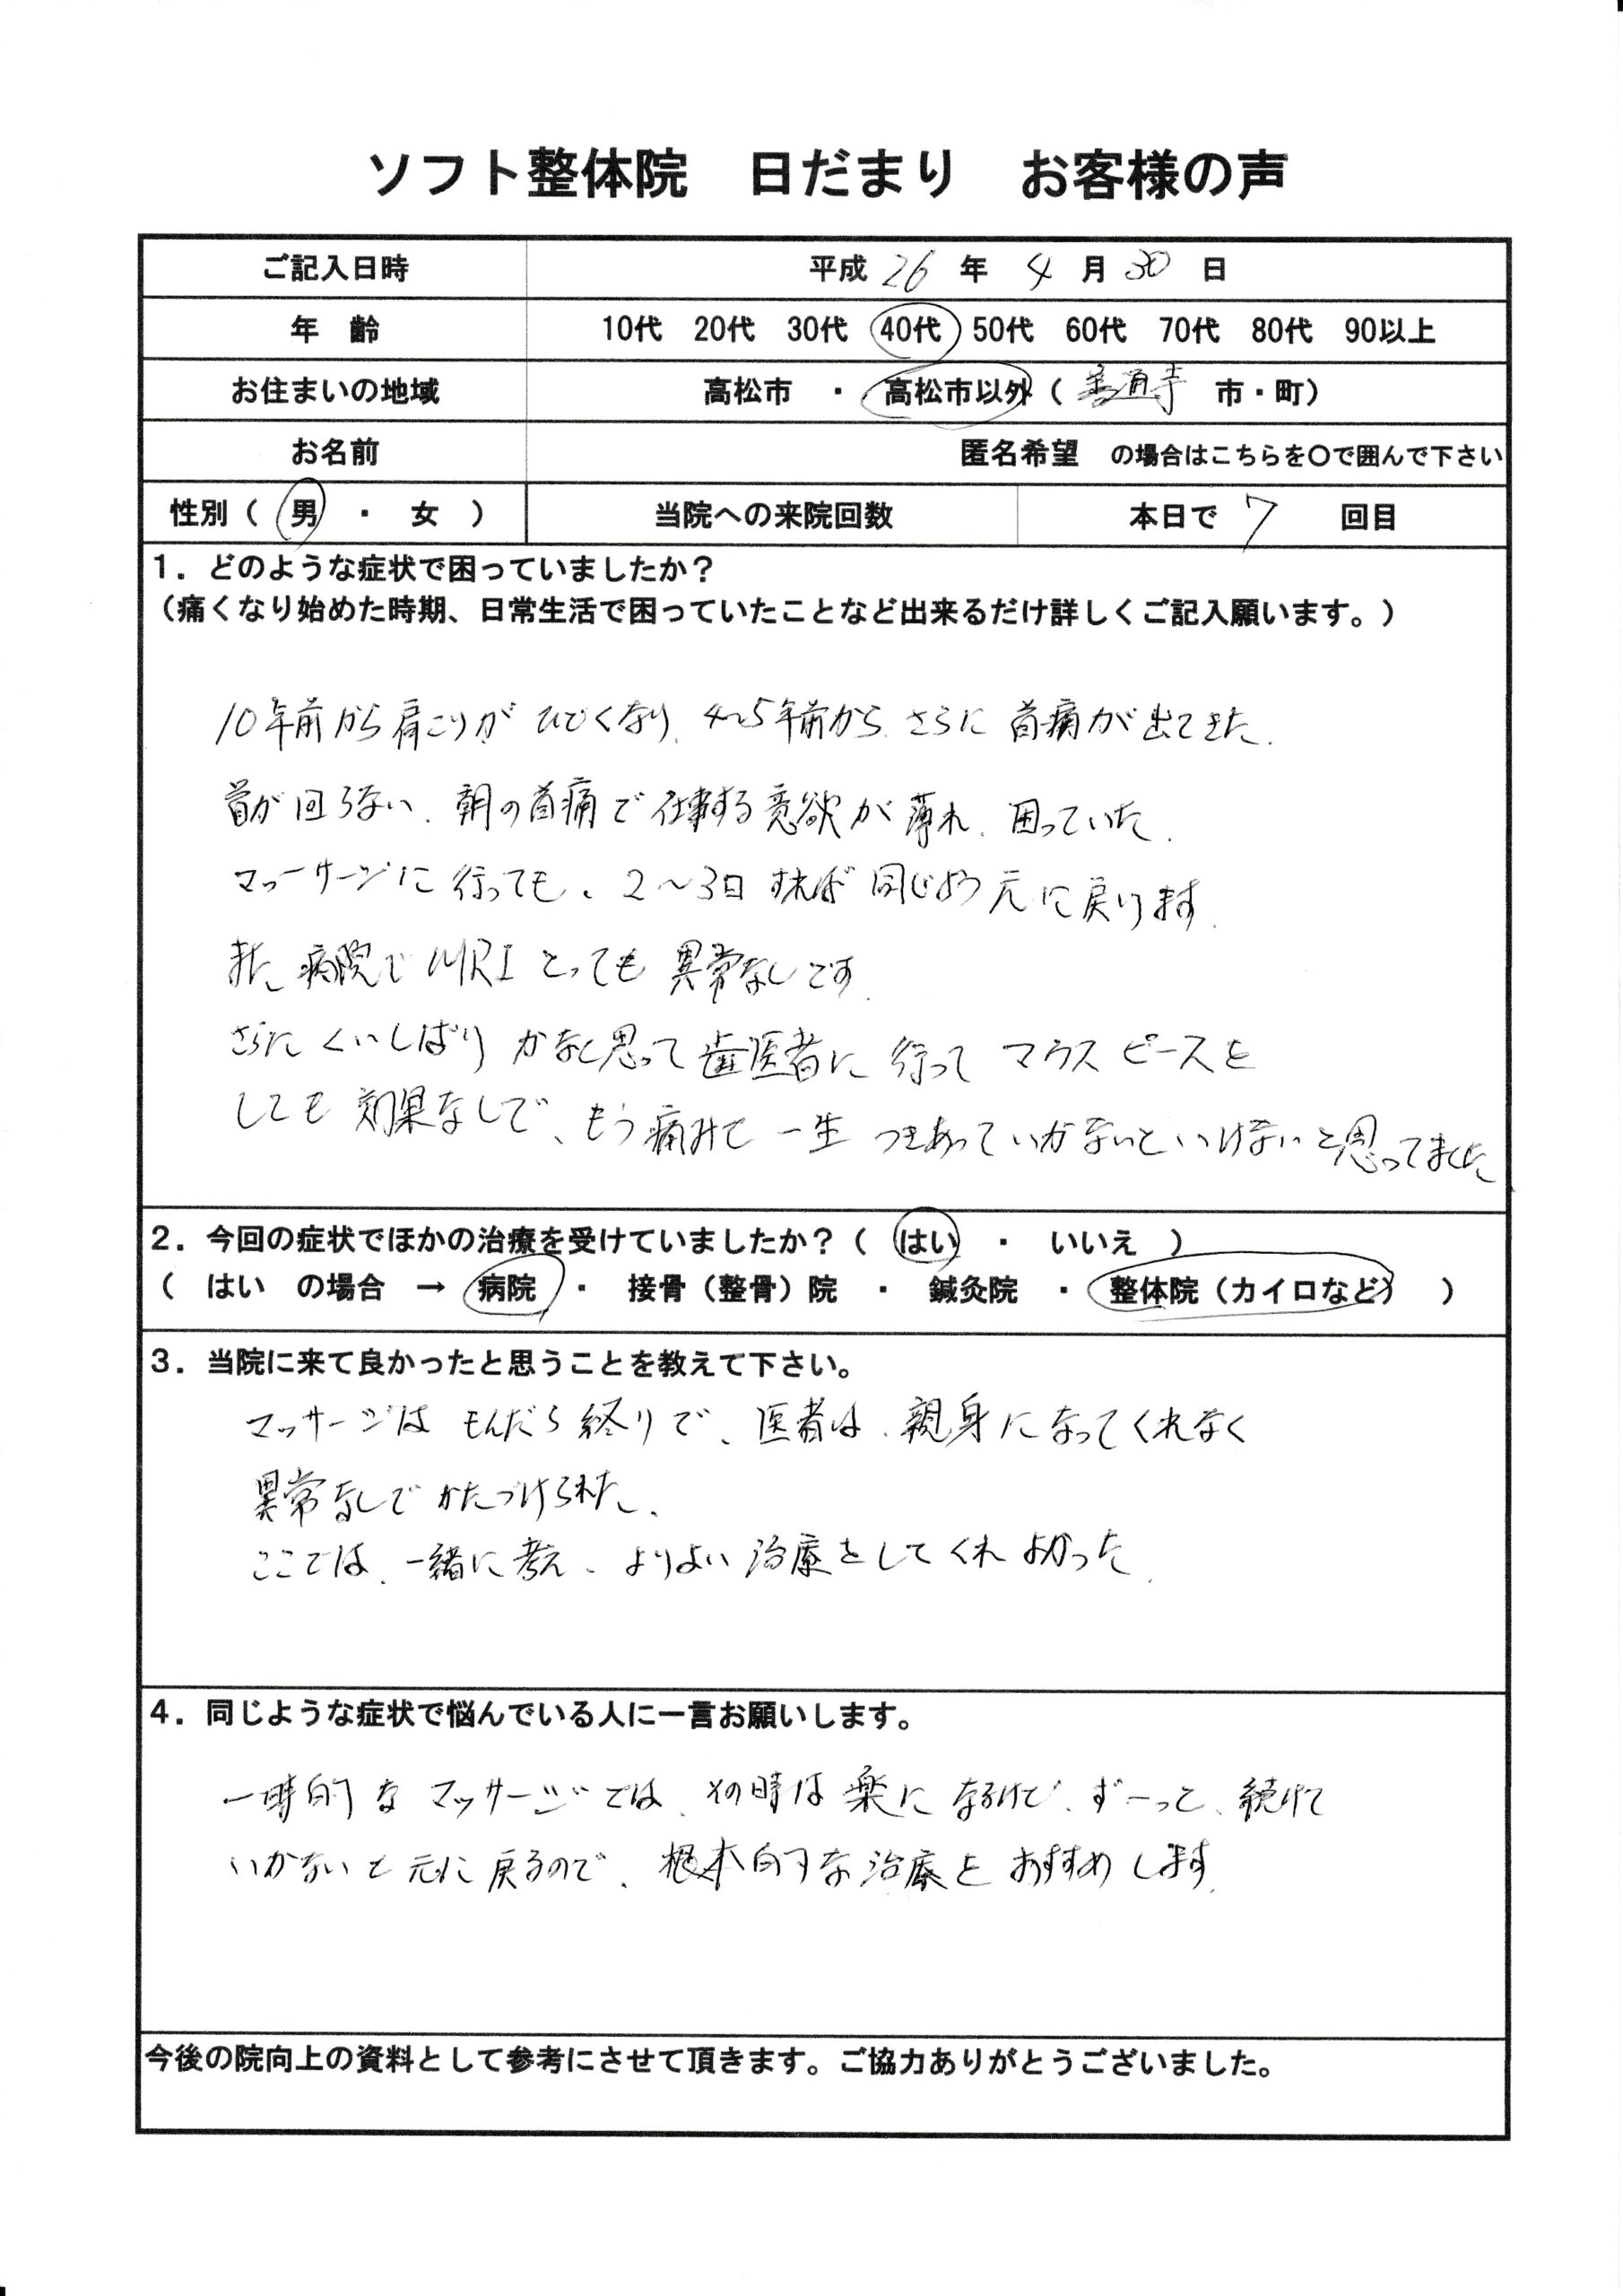 ソフト整体院　日だまり　お客様の声
ご記入日時　平成 26 年 4 月 30 日
年　齢　10代　20代　30代　40代　50代　60代　70代　80代　90以上
お住まいの地域　高松市　・　高松市以外（ 善通寺　市・町）
お名前　匿名希望　の場合はこちらを○で囲んで下さい
性別（　男　・　女　）　当院への来院回数　本日で 7 回目
1．どのような症状で困っていましたか？
（痛くなり始めた時期、日常生活で困っていたことなど出来るだけ詳しくご記入願います。）
10年前から肩こりがひどくなり、4~5年前からさらに首痛が出てきた。
首が回らない、朝の首痛で仕事する意欲が薄れ、困っていた。
マッーサージに行っても、2～3日すれば同じよう元に戻ります。
また、病院でMRIとっても異常なしです。
さらにくいしばりかなと思って歯医者に行ってマウスピースを
しても効果なしで、もう痛みで一生つきあっていかないといけないと思ってました
2．今回の症状でほかの治療を受けていましたか？（　はい　・　いいえ　）
（　はい　の場合　→　病院　・　接骨（整骨）院　・　鍼灸院　・　整体院（カイロなど）　）
3．当院に来て良かったと思うことを教えて下さい。
マッサージはもんだら終りで、医者は、親身になってくれなく
異常なしでかたづけられた。
ここでは、一緒に考え、よりよい治療をしてくれよかった。
4．同じような症状で悩んでいる人に一言お願いします。
一時的なマッサージでは、その時は楽になるけど、ずーっと、続けて
いかないと元に戻るので、根本的な治療をおすすめします。
今後の院向上の資料として参考にさせて頂きます。ご協力ありがとうございました。